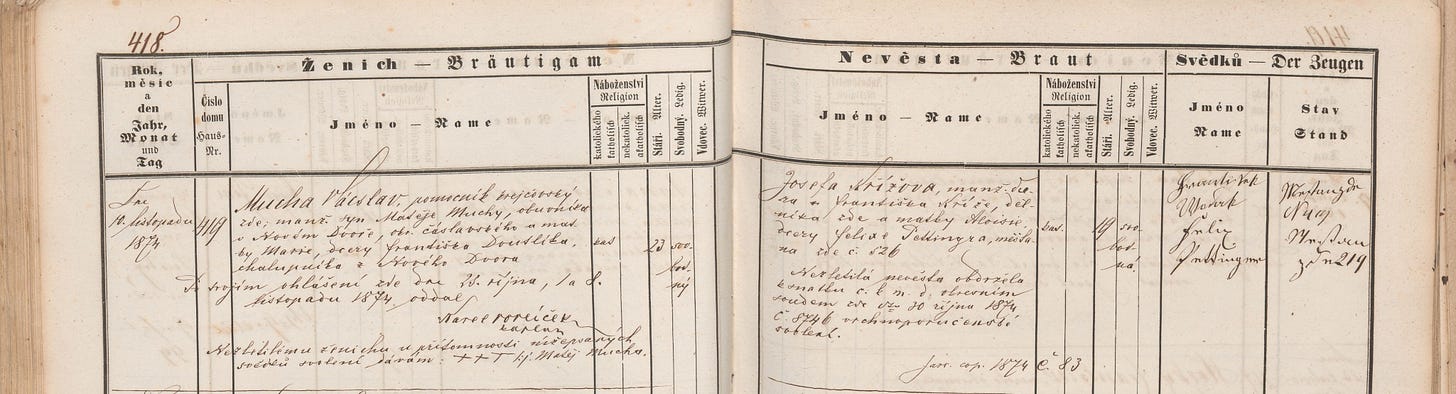 418.
Rok,
měsíc
a
den
Jahr,
Monat
und
Tag
Číslo
domu
Haus-
Nr.
Ženich — Bräutigam
Jméno — Name
Náboženství
Religion
katolického
katholisch
nekatolick.
akatholisch
Stáří. Alter.
Svobodný. Ledig.
Vdovec. Witwer.
Nevěsta — Braut
Jméno — Name
Náboženství
Religion
katolického
katholisch
nekatolick.
akatholisch
Stáří. Alter.
Svobodný. Ledig.
Vdovec. Witwer.
Svědků — Der Zeugen
Jméno
Name
Stav
Stand
Dne
10. listopadu
1874
419
Mucha Václav, pomocník krejčovský
zde, manž. syn Matěje Muchy, obuvníka
v Novém Dvoře, okr. čáslavského a mat
ky Marie, dcery Františka Doustlíka,
chalupníka z Nového Dvora
kat
23
svo
bod-
ný
Po trojím ohlášení zde dne 25. října, 1 a 8.
listopadu 1874 oddal
Karel
kaplan
Nezletilému ženichu u přítomnosti nížepsaných
svědků svolení dávám: +++ Matěj Mucha.
Josefa Křížova, manž. dce-
ra Františka Kříže, děl-
níka zde a matky Aloisie
dcery Felixe Pettingra, měšťa-
na zde č. 526
kat.
19
svo
bod
ná
Nezletilá nevěsta obdržela
k sňatku c. k. m. d. okresním
soudem zde dto 30 října 1874
č. 8746 vrchnoporučenské
svolení.
cop. 1874 č 83
František
Felix
Pettinger
zde 219